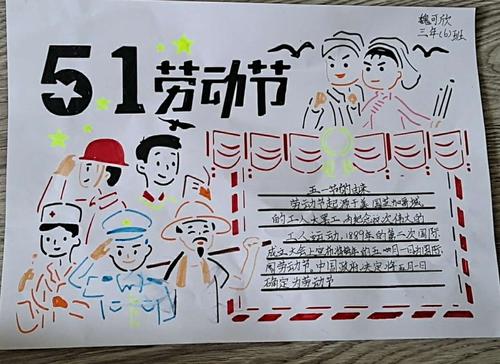 魏可欣
三年(6)班
5.1劳动节
五一节的由来
劳动节起源于美国芝加哥城
的工人大罢工,为纪念这次伟大的
工人运动,1889年的第二次国际
成立大会上宣布将每年的五一月一日的国际
劳动节,中国政府决定将五月一日
确定为劳动节